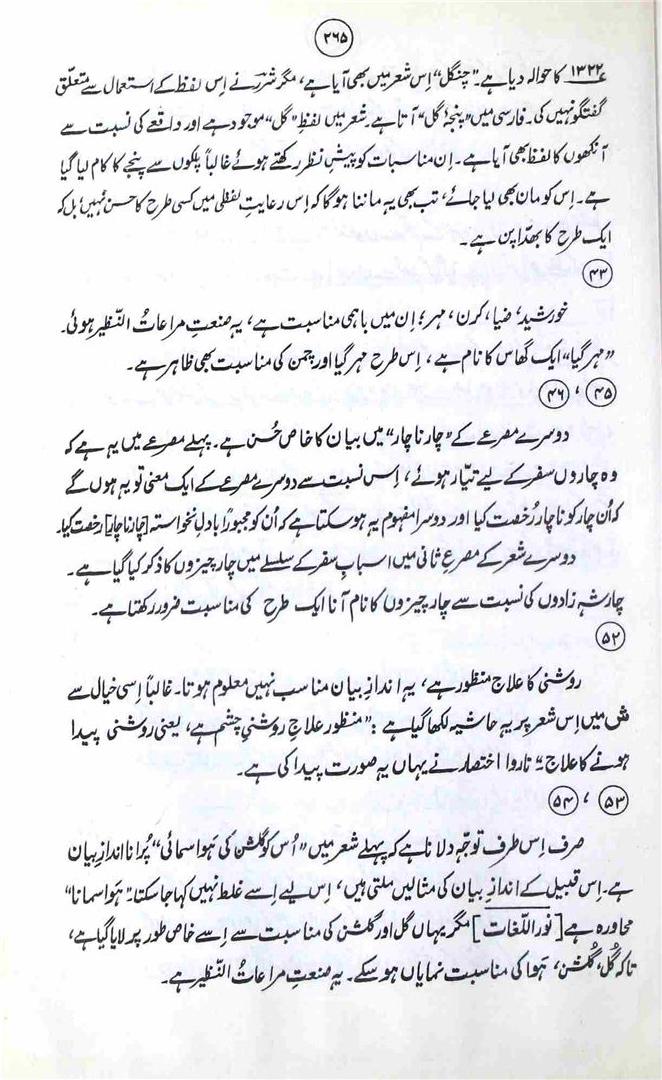 ۲۶۵
۱۳۲۲ء کا حوالہ دیا ہے۔ "چنگل" اِس شعر میں بھی آیا ہے، مگر شررؔ نے اِس لفظ کے استعمال سے متعلّق
گفتگو نہیں کی۔ فارسی میں "پنجۂ گل" آتا ہے۔ شعر میں لفظِ "گل" موجود ہے اور واقعے کی نسبت سے
آنکھوں کا لفظ بھی آیا ہے۔ اِن مناسبات کو پیشِ نظر رکھتے ہوئے غالباً پلکوں سے پنجے کا کام لیا گیا
ہے۔ اِس کو مان بھی لیا جائے، تب بھی یہ ماننا ہوگا کہ اِس رعایتِ لفظی میں کسی طرح کا حسن نہیں؛ بل کہ
ایک طرح کا بھدّاپن ہے۔
۴۳
خورشید، ضیا، کرن، مہر؛ اِن میں باہمی مناسبت ہے، یہ صنعتِ مراعاتُ النّظیر ہوئی۔
"مہر گیا" ایک گھاس کا نام ہے، اِس طرح مہر گیا اور چمن کی مناسبت بھی ظاہر ہے۔
۴۵، ۴۶
دوسرے مصرعے کے "چار ناچار" میں بیان کا خاص حُسن ہے۔ پہلے مصرعے میں یہ ہے کہ
وہ چاروں سفر کے لیے تیّار ہوئے، اِس نسبت سے دوسرے مصرعے کے ایک معنی تو یہ ہوں گے
کہ اُن چار کو ناچار رُخصت کیا اور دوسرا مفہوم یہ ہوسکتا ہے کہ اُن کو مجبوراً بادلِ نخواستہ [چارناچار] رخصت کیا۔
دوسرے شعر کے مصرعِ ثانی میں اسبابِ سفر کے سلسلے میں چار چیزوں کا ذکر کیا گیا ہے۔
چار شہ زادوں کی نسبت سے چار چیزوں کا نام آنا ایک طرح کی مناسبت ضرور رکھتا ہے۔
۵۲
روشنی کا علاج منظور ہے، یہ اندازِ بیان مناسب نہیں معلوم ہوتا۔ غالباً اِسی خیال سے
ش میں اِس شعر پر یہ حاشیہ لکھا گیا ہے: "منظور علاجِ روشنیِ چشم ہے، یعنی روشنی پیدا
ہونے کا علاج"۔ ناروا اختصار نے یہاں یہ صورت پیدا کی ہے۔
۵۳، ۵۴
صرف اِس طرف توجّہ دلانا ہے کہ پہلے شعر میں "اُس کو گلشن کی ہَوا سمائی" پُرانا اندازِ بیان
ہے۔ اِس قبیل کے اندازِ بیان کی مثالیں ملتی ہیں، اِس لیے اِسے غلط نہیں کہا جاسکتا۔ "ہَوا سمانا"
محاورہ ہے [نورُاللّغات] مگر یہاں گل اور گلشن کی مناسبت سے اِسے خاص طور پر لایا گیا ہے،
تاکہ گُل، گُلشن، ہَوا کی مناسبت نمایاں ہوسکے۔ یہ صنعتِ مراعاتُ النّظیر ہے۔